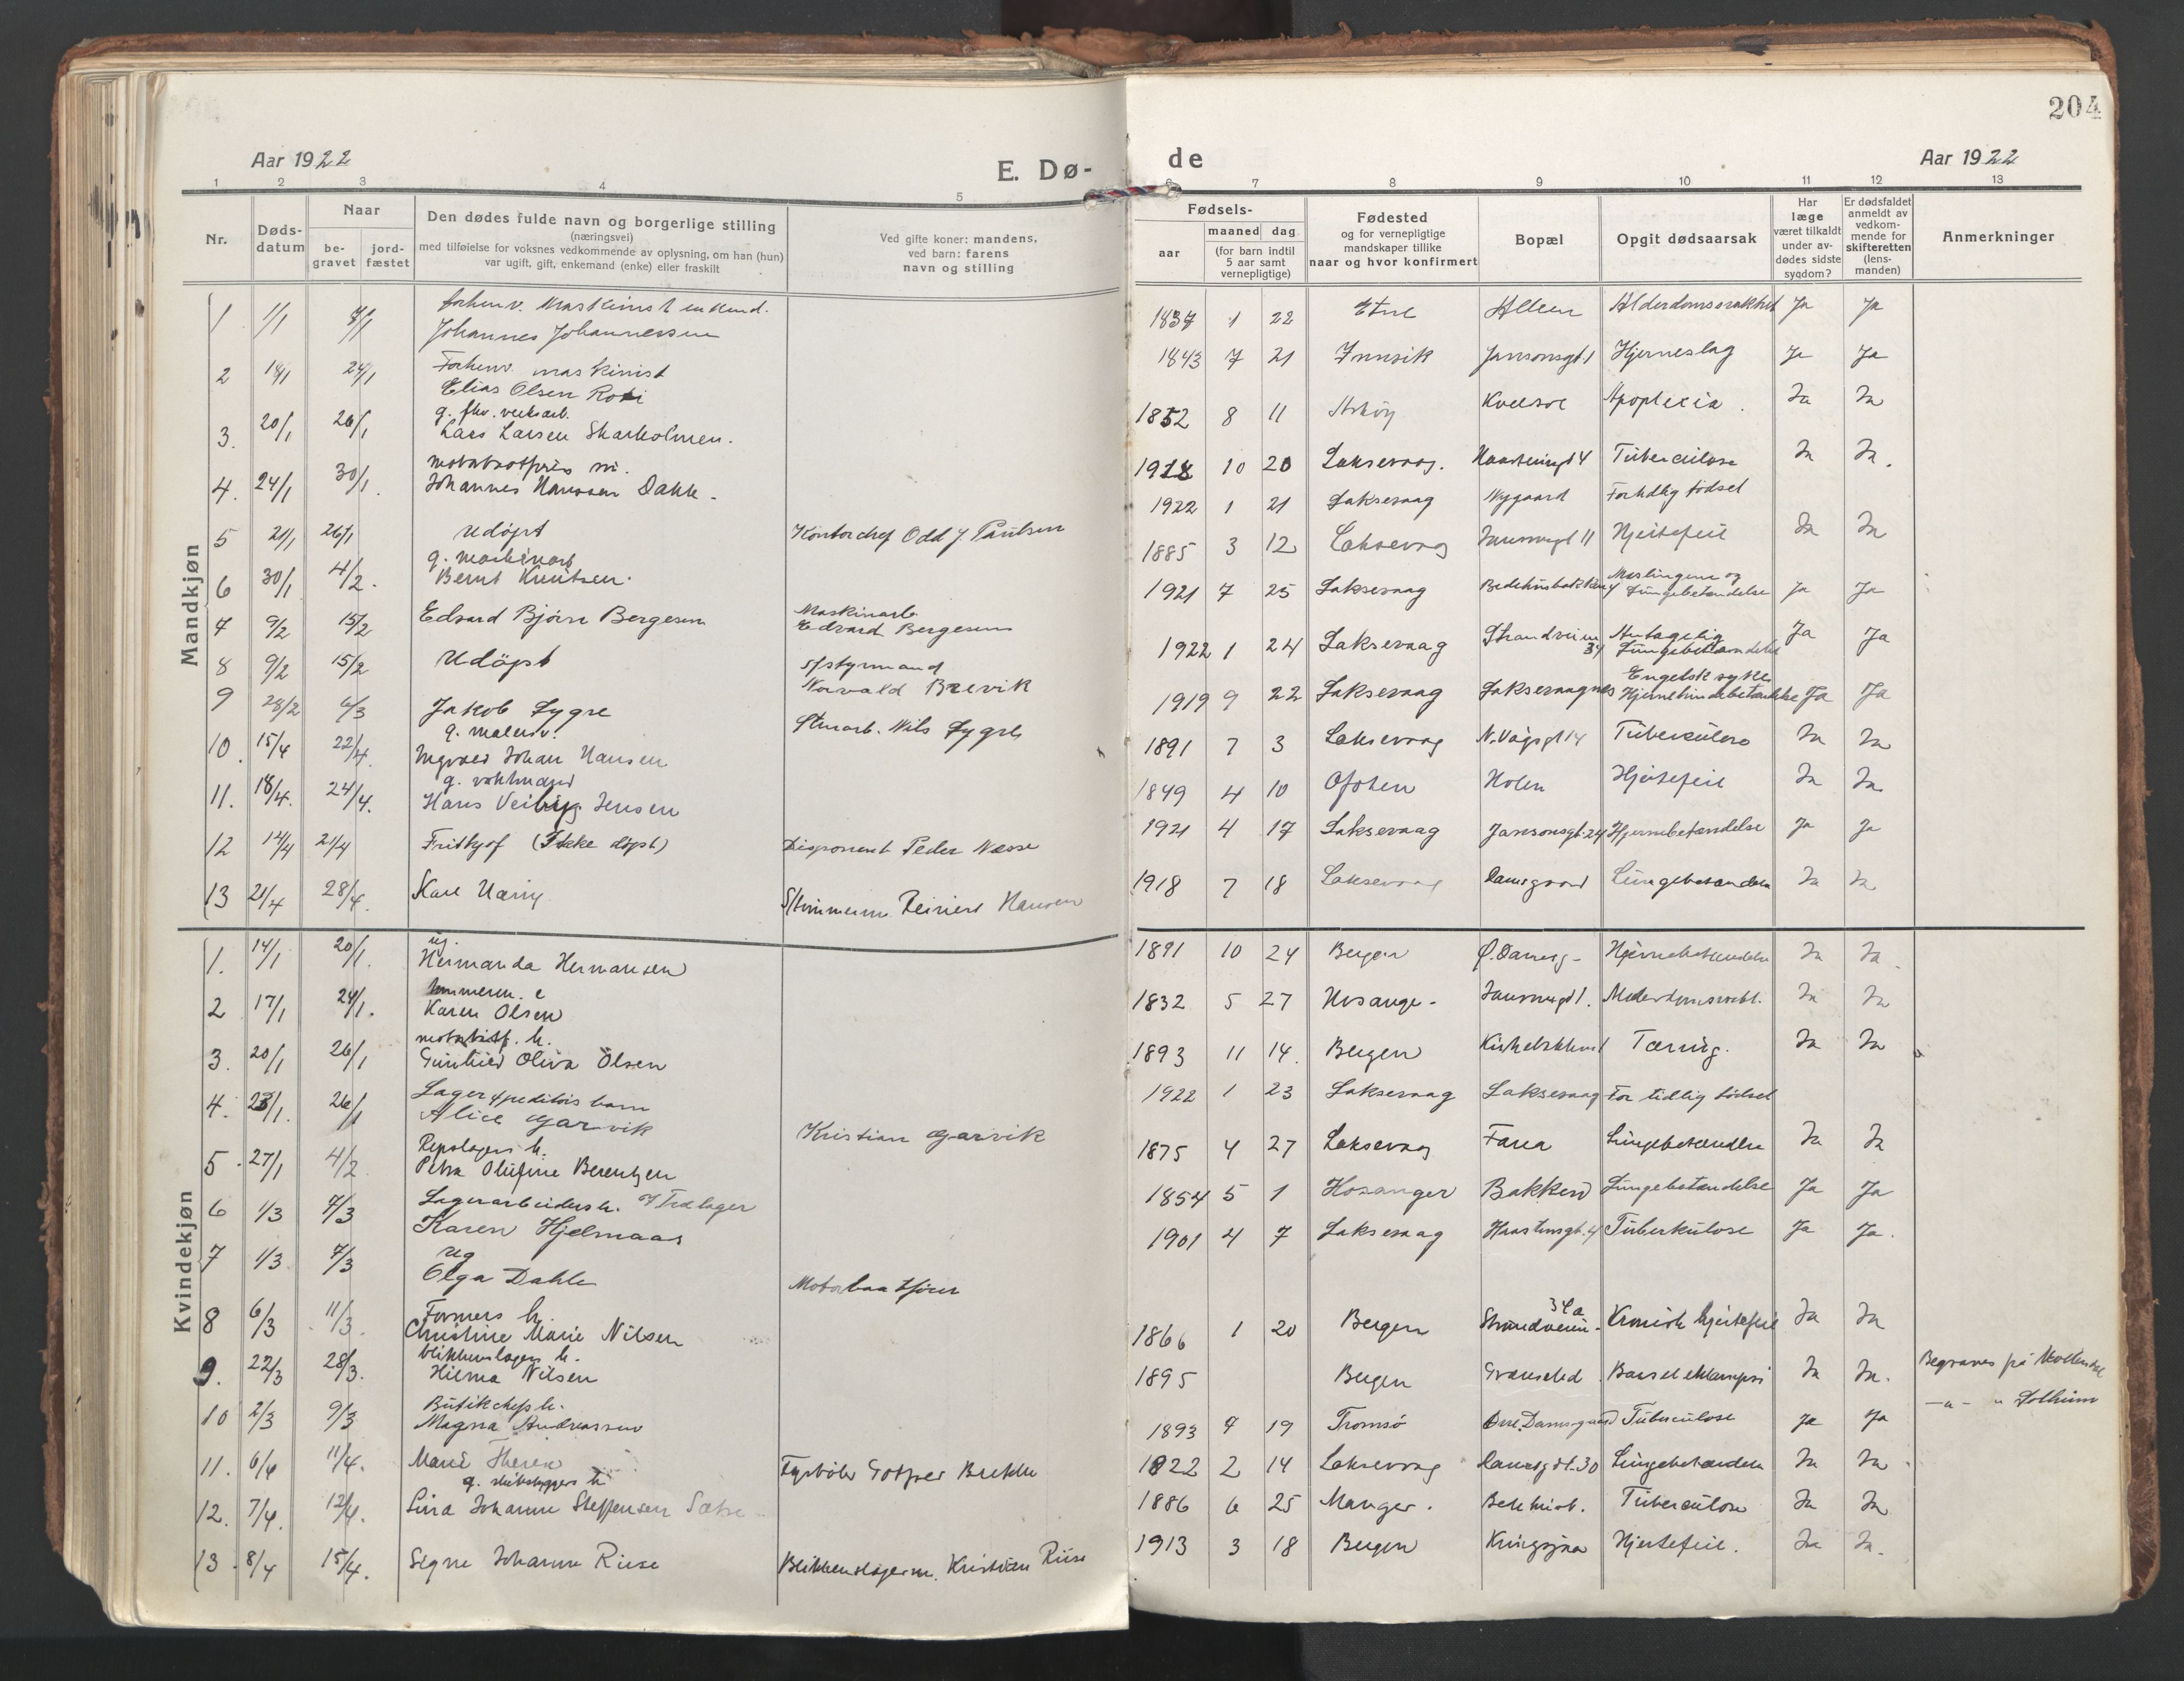 204
Aar 1922
E. Dø-
de
Aar 1922
1 2 3 4 5 6 7 8 9 10 11 12 13
Nr.
Døds-
datum
Naar
be-
gravet
jord-
fæstet
Den dødes fulde navn og borgerlige stilling
(næringsvei)
med tilføielse for voksnes vedkommende av oplysning, om han (hun)
var ugift, gift, enkemand (enke) eller fraskilt
Ved gifte koner: mandens,
ved barn: farens
navn og stilling
Fødsels-
aar
maaned dag
(for barn indtil
5 aar samt
vernepligtige)
Fødested
og for vernepligtige
mandskaper tillike
naar og hvor konfirmert
Bopæl
Opgit dødsaarsak
Har
læge
været tilkaldt
under av-
dødes sidste
sygdom?
Er dødsfaldet
anmeldt av
vedkom-
mende for
skifteretten
(lens-
manden)
Anmerkninger
Mandkjøn
forhenv. Maskinist enkemd.
1 1/1 Johannes Johannessen 1837 1 22 Etne Alleen Alderdomssvakhet Ja Ja
Forhenv. maskinist
2 18/1 24/1 Elias Olsen 1843 7 21 Innvik Jansonsgt 1 Hjerneslag Ja Ja
g. fhv. verksarb.
3. 20/1 26/1 Lars Larsen Skarholmen. 1852 8 11 Askøy Apoplexia. Ja Ja
4. 24/1 30/1. Johannes Hanssen Dahle 1918 10 20 Laksevaag. Tuberculose Ja Ja.
5 21/1 26/1 Udöpt Kontorchef Odd J Paulsen 1922 1 21 Laksevaag Nygaard Fortidlig födsel
g. maskinarb
6 30/1 4/2. Bernt Knutsen. 1885 3 12 Laksevag Hjertefeil Ja Ja
Maskinarb. Meslingene og
7 9/2 15/2 Edvard Bjørn Bergesen Edvard Bergesen 1921 7 25 Laksevaag Lungebetændelse Ja Ja
8 9/2 15/2 Udöpt Styrmand
Brevik 1922 1 24 Laksevaag Strandveien 34 Antagelig Lungebetændelse Ja Ja
Engelsk syke
9 28/2 6/3 Jakob Lygre Nils Lygre 1919 9 22 Laksevaag Laksevaagnes Hjernehindebetændelse Ja Ja
g. malersv.
10. 15/4 22/4. Ingvald Johan Hansen 1891 7 3 Laksevaag N. Vågsgt 14 Tuberkulose Ja Ja
11. 18/4. 24/4. Hans Jensen 1849 4 10 Ofoten Holen Hjertefeil Ja Ja
12 14/4 21/4 Frithjof (Ikke döpt) Disponent Peder Næsse 1921 4 17 Laksevaag Jansonsgt. 24 Hjernebetændelse Ja Ja
13 21/4 28/4. Karl Harry Reinert Hansen 1918 7 18 Laksevaag Damsgaard Lungebetændelse Ja Ja
Kvindekjøn
ug.
1. 14/1 20/1. Hermanda Hermansen 1891 10 24 Bergen Ø. Damsg- Hjernebetændelse Ja Ja
tømmerm. e
2 17/1 24/1. Karen Olsen 1832 5 27 Hosange- Ja Ja
3. 20/1 26/1 Gunhild Oliva Olsen 1893 11 14. Bergen Tæring. Ja Ja
Lagerexpeditørs barn
4. 23/1. 26/1 Alice Gjarvik Kristian Gjarvik 1922 1 23 Laksevaag Laksevaag For tidlig födsel
Repslagers h.
5. 27/1 4/2. Petra Olufine Berentzen 1875 4 27 Laksevag Lungebetændelse Ja Ja
Lagerarbeiders h.
6 1/3 7/3 Karen Hjelmaas 1854 5 1 Hosanger Bakken Lungebetændelse Ja Ja
ug
7 1/3 7/3 Olga Dahle Motorbaatfører 1901 4 7 Laksevaag Tuberkulose Ja Ja.
Formers h.
8 6/3 11/3. Christine Marie Nilsen 1866 1 20 Bergen Strandveien 34a Kronisk hjertefeil Ja Ja
blikkenslagers h.
9. 22/3 28/3. Hilma Nilsen 1895 Bergen Barseleklampsi Ja Ja. Begraves på Møllendal
Butikchefs h.
10 2/3 9/3 Magna Andreassen 1893 9 19 Tromsø Øvre Damsgaard Tuberculose Ja Ja —"— " Solheim
11. 6/4 11/4. Marie Brekke 1922 2 14 Laksevaag Damsgdt. 30 Lungebetændelse Ja Ja
12. 7/4. 12/4. Lina Johanne Steffensen 1886 6 25 Manger. Tuberculose Ja Ja
13. 8/4 15/4. Signe Johanne Riise Blikkenslagerm. Kristian Riise 1913 3 18 Bergen Kringsjaa Hjertefeil. Ja Ja.